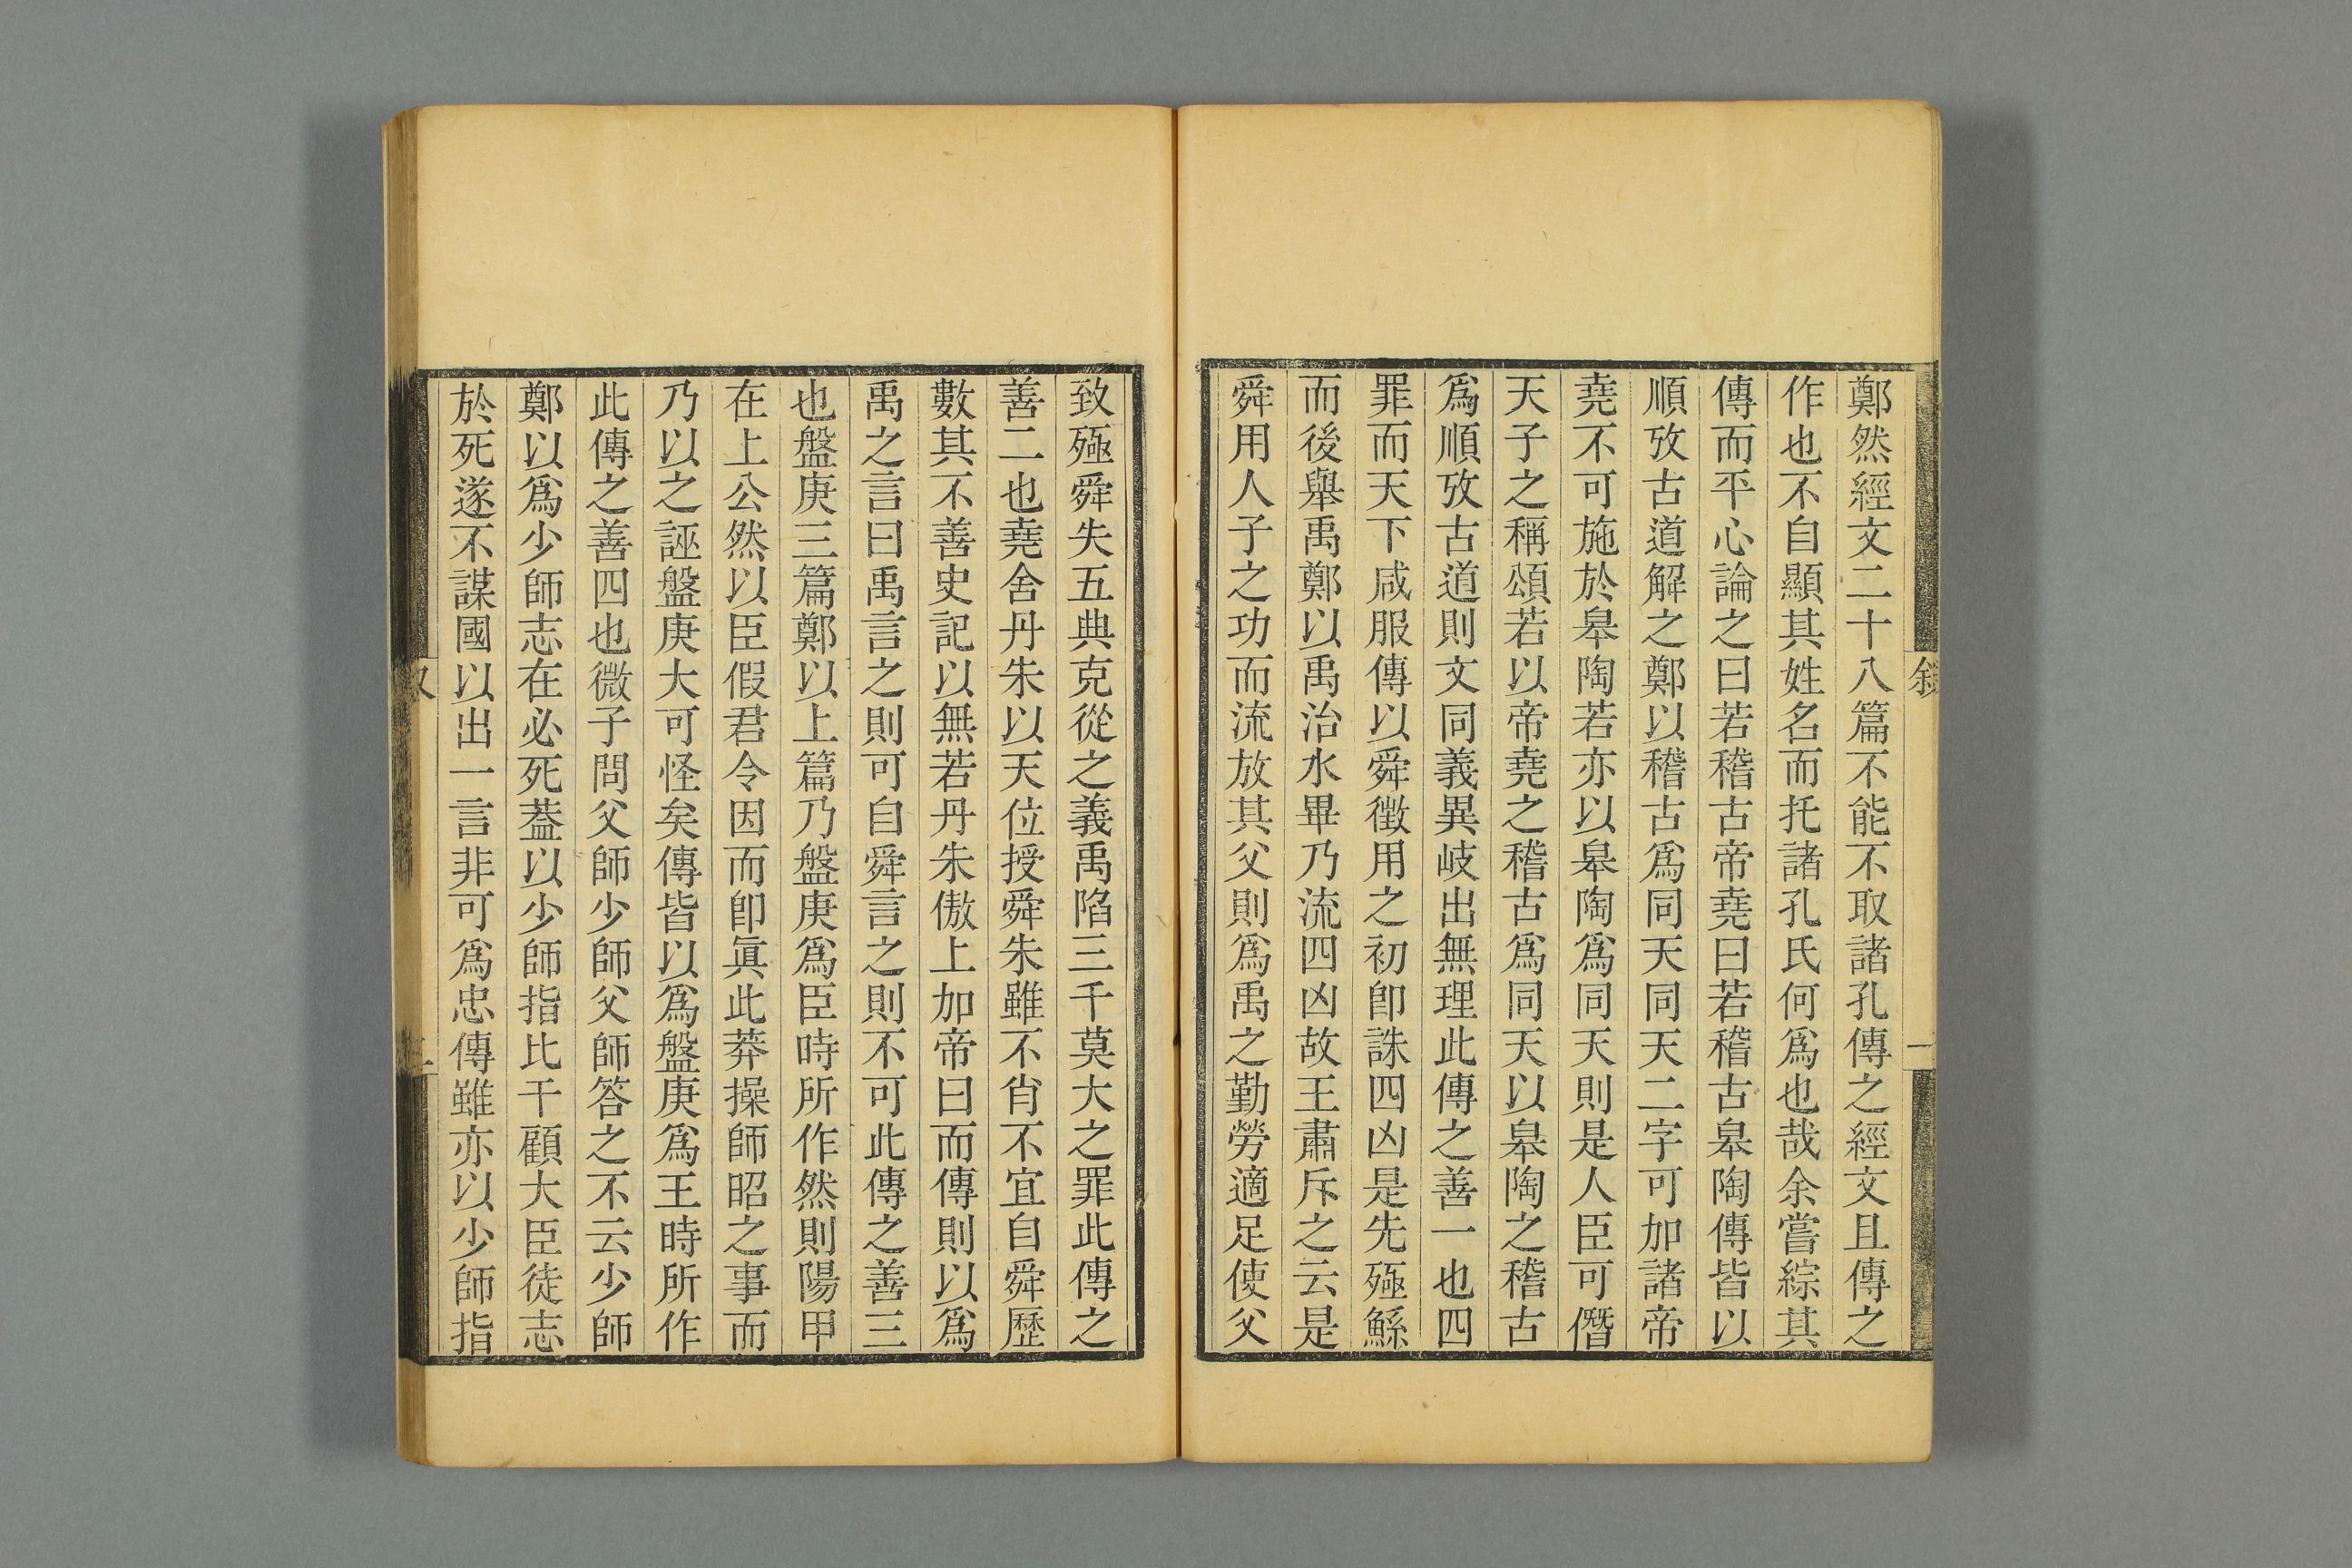 鄭然經文二十八篇不能不取諸孔傳之經文且傳之
作也不自顯其姓名而托諸孔氏何爲也哉余嘗綜其
傳而平心論之曰若稽古帝堯曰若稽古皋陶傳皆以
順攷古道解之鄭以稽古爲同天同天二字可加諸帝
堯不可施於皋陶若亦以皋陶爲同天則是人臣可僭
天子之稱頌若以帝堯之稽古爲同天以皋陶之稽古
爲順攷古道則文同義異岐出無理此傳之善一也四
罪而天下咸服傳以舜徵用之初卽誅四凶是先殛鯀
而後舉禹鄭以禹治水畢乃流四凶故王肅斥之云是
舜用人子之功而流放其父則爲禹之勤勞適足使父
致殛舜失五典克從之義禹陷三千莫大之罪此傳之
善二也堯舍丹朱以天位授舜朱雖不肖不宜自舜歷
數其不善史記以無若丹朱傲上加帝曰而傳則以爲
禹之言曰禹言之則可自舜言之則不可此傳之善三
也盤庚三篇鄭以上篇乃盤庚爲臣時所作然則陽甲
在上公然以臣假君令因而卽眞此莽操師昭之事而
乃以之誣盤庚大可怪矣傳皆以爲盤庚爲王時所作
此傳之善四也微子問父師少師父師答之不云少師
鄭以爲少師志在必死葢以少師指比干顧大臣徒志
於死遂不謀國以出一言非可爲忠傳雖亦以少師指